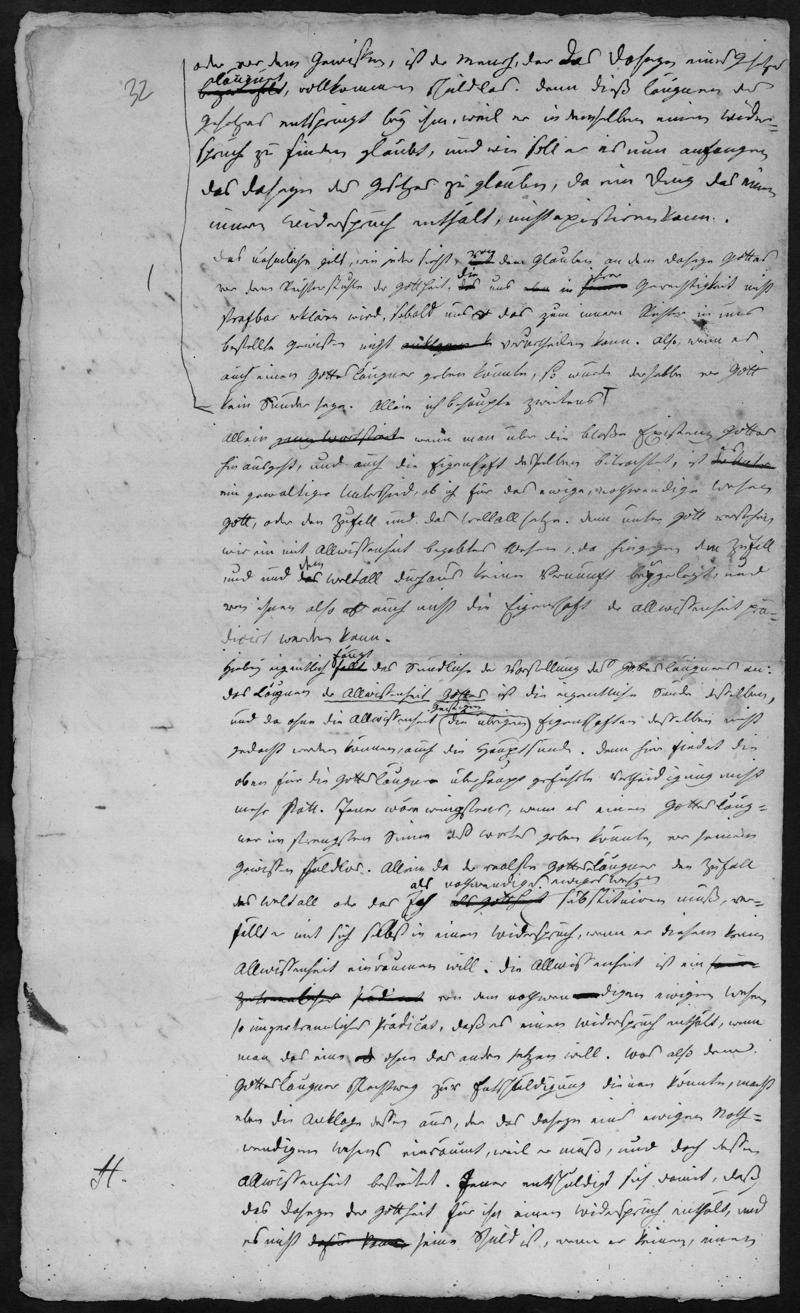 32
oder vor dem Gewissen, ist der Mensch, der das Daseyn eines Gesetzes
läugnet
vollkommen schuldlos. Denn dieß Läugnen des
Gesetzes entspringt bey ihm, weil er in demselben einen Wider-
spruch zu finden glaubt, und wie soll er es nun anfangen
das Daseyn des Gesetzes zu glauben, da ein Ding das einen
innern Widerspruch enthält, nicht existieren kann.
Das nehmliche gilt, wie jeder sieht, von dem Glauben an dem Daseyn Gottes
vor dem Richterstuhle der Gottheit, die uns in ihrer Gerechtigkeit nicht
strafbar erklären wird, sobald uns das zum innern Richter in uns
bestellte Gewissen nicht verurtheilen kann. Also, wenn es
auch einen Gottesläugner geben könnte, so würde derselbe vor Gott
kein Sünder seyn. Allein ich behaupte zweitens
Allein wenn man über die bloße Existenz Gottes
hinausgeht, und auch die Eigenschaft desselben betrachtet, ist
ein gewaltiger Unterschied, ob ich für das ewige, nothwendige Wesen
Gott, oder den Zufall und das Weltall setze. Denn unter Gott verstehen
wir ein mit Allwissenheit begabtes Wesen, da hingegen dem Zufall
und und dem Weltall durchaus keine Vernunft beygelegt, und
von ihnen also auch nicht die Eigenschaft der Allwissenheit prä-
dicirt werden kann.
Hiebey eigentlich fängt das Sündliche der Vorstellung des Gottesläugners an:
das Läugnen der Allwissenheit Gottes ist die eigentliche Sünde desselben,
und da ohne die Allwissenheit (die übrigen) geistigen Eigenschaften desselben nicht
gedacht werden können, auch die Hauptsünde. Denn hier findet die
oben für die Gottesläugner überhaupt geführte Vertheidigung nicht
mehr Statt. Jener wäre wenigstens, wenn es einen Gottesläug-
ner im strengsten Sinne des Wortes geben könnte, vor seinem
Gewissen schuldlos. Allein da der Gottesläugner den Zufall
das Weltall oder das Ich als nothwendiges ewiges Wesen substituiren muß, ver-
fällt er mit sich selbst in einen Widerspruch, wenn er diesem keine
Allwissenheit einräumen will. Die Allwissenheit ist ein
von dem nothwendigen ewigen Wesen
so unzertrennliches Prädicat, daß es einen Widerspruch enthält, wenn
man das eine ohne das andre setzen will. Was also dem
Gottesläugner schlechtweg zur Entschuldigung dienen könnte, macht
eben die Anklage dessen aus, der das Daseyn eines ewigen Noth-
wendigen Wesens einräumt, weil er muß, und doch dessen
Allwissenheit bestreitet. Jener entschuldigt sich damit, daß
das Daseyn der Gottheit für ihn einen Widerspruch enthält, und
es nicht seine Schuld ist, wenn er keinen, einen
H.